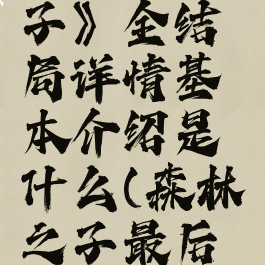 子》全结
局详情基
本介绍是
什么(森林
之子最后